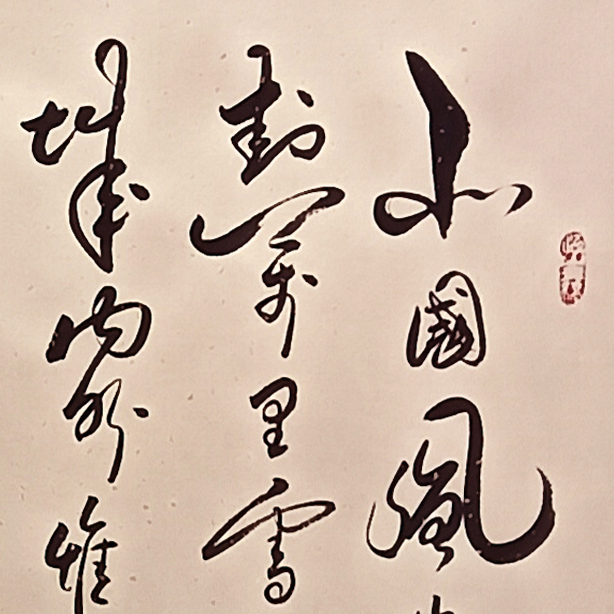 北國風
封萬里雪
城內外惟